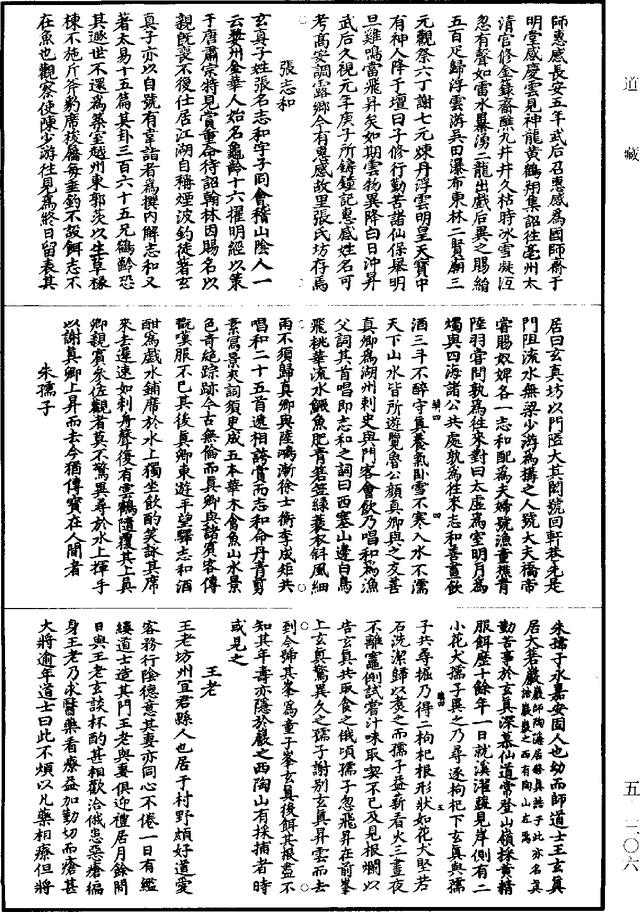 道藏
五—三〇六
師惠感長安五年武后召惠感為國師齋于
明堂感慶雲見神龍黃鶴翔集詔往亳州太
清宮修金籙齋醮九井井久枯時冰雪凝沍
忽有聲如雷水暴湧二龍出戲后異之賜給
五百疋歸浮雲游吳田瀑布東林二賢廟三
元觀祭六丁謝七元煉丹浮雲明皇天寶中
有神人降于壇曰子修行勤苦諸仙保舉明
旦雞鳴當飛昇矣如期雲物異降白日沖昇
武后久視元年庚子所鑄鐘記惠感姓名可
考高安調露鄉今有惠感故里張氏坊存焉
張志和
玄真子姓張名志和字子同會稽山陰人一
云婺州金華人始名龜齡十六擢明經以策
于唐肅宗特見賞重命待詔翰林因賜名以
親既喪不復仕居江湖自稱煙波釣徒著玄
真子亦以自號有韋詣者為撰內解志和又
著太易十五篇其卦三百六十五兄鶴齡恐
其遁世不還為築室越州東郭茨以生草椽
棟不施斤斧豹席椶屩每垂釣不設餌志不
在魚也觀察使陳少游往見為終日留表其
居曰玄真坊以門隘大其閎號回軒巷先是
門阻流水無梁少游為構之人號大夫橋帝
嘗賜奴婢各一志和配為夫婦號漁童樵青
陸羽嘗問孰為往來對曰太虛為室明月為
燭與四海諸公共處孰為往來志和善畫飲
酒三斗不醉守真養氣臥雪不寒入水不濡
天下山水皆所遊覽魯公顏真卿與之友善
真卿為湖州刺史與門客會飲乃唱和為漁
父詞其首唱即志和之詞曰西塞山邊白鳥
飛桃華流水鱖魚肥青箬笠綠蓑衣斜風細
雨不須歸真卿與陸鴻漸徐士衡李成矩共
唱和二十五首遞相誇賞而志和命丹青剪
素寫景夾詞須臾成五本華木禽魚山水景
色奇絕踪跡今古無倫而真卿與諸賓客傳
翫嘆服不已其後真卿東遊平望驛志和酒
酣為戲水鋪席於水上獨坐飲酌笑詠其席
來去遲速如刺舟聲復有雲鶴隨覆其上真
卿親賓參佐觀者莫不驚異尋於水上揮手
以謝真卿上昇而去今猶傳寶在人間者
朱孺子
朱孺子永嘉安固人也幼而師道士王玄真
居大箬巖
勤苦事於玄真深慕仙道常登山嶺採黃精
服餌歷十餘年一日就溪濯蔬見岸側有二
小花犬孺子異之乃尋逐枸杞下玄真與孺
子共尋掘乃得二枸杞根形狀如花犬堅若
石洗潔歸以煑之而孺子益薪看火三晝夜
不離竈側試嘗汁味取喫不已及見根爛以
告玄真共取食之俄頃孺子忽飛昇在前峯
上玄真驚異久之孺子謝別玄真昇雲而去
到今號其峯為童子峯玄真後餌其根盡不
知其年壽亦隱於巖之西陶山有採捕者時
或見之
王老
王老坊州宜君縣人也居于村野頗好道愛
客務行陰德意其妻亦同心不倦一日有繿
縷道士造其門王老與妻俱迎禮居月餘間
日與王老玄談杯酌甚相歡洽俄患惡瘡徧
身王老乃求醫藥看療益加勤切而瘡甚
大將逾年道士曰此不煩以凡藥相療但將